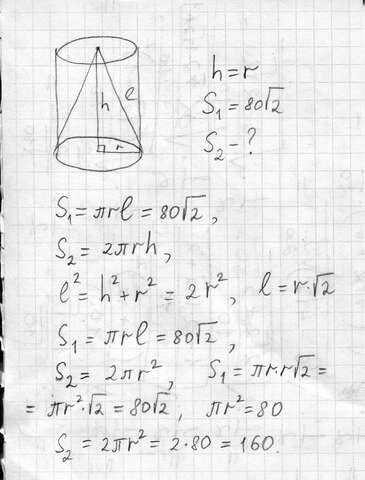 h
l
r
h = r
S₁ = 80√2
S₂ - ?
S₁ = πrl = 80√2,
S₂ = 2πrh,
l² = h² + r² = 2r², l = r·√2
S₁ = πrl = 80√2,
S₂ = 2πr², S₁ = πr·r√2 =
= πr²·√2 = 80√2, πr² = 80
S₂ = 2πr² = 2·80 = 160.